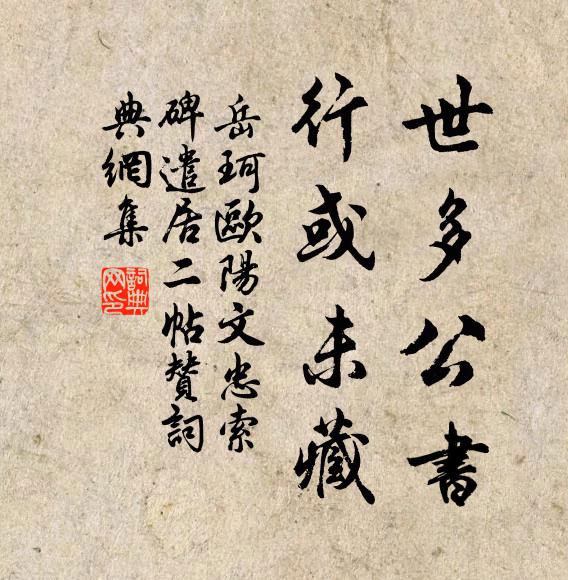 世多公書
行或未藏
岳珂歐陽文忠索
碑遣居二帖贊詞
典網集
詞典网印